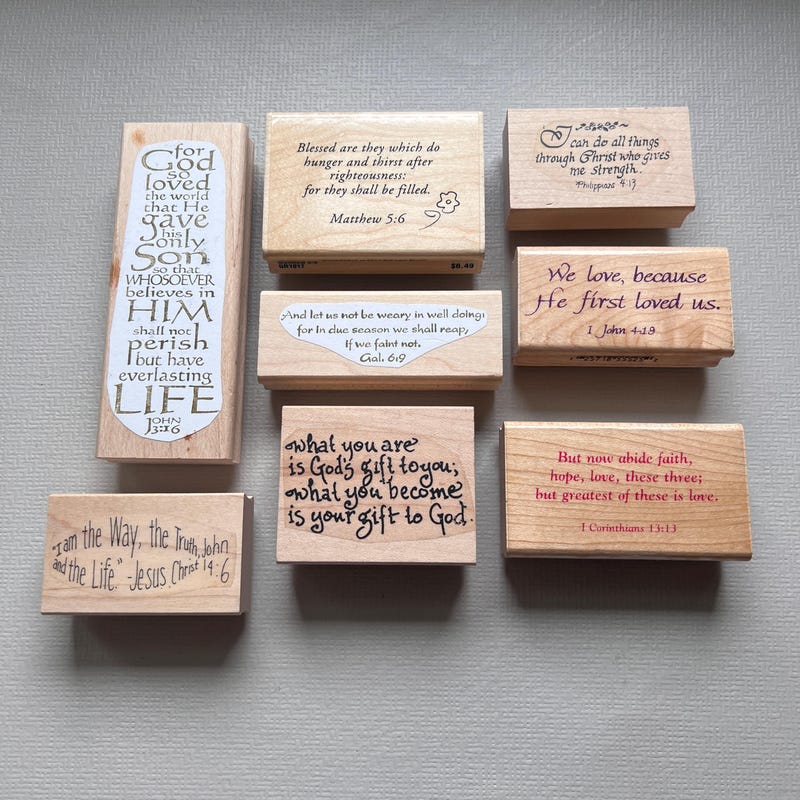 for
God
so
loved
the world
that He
gave
his
only
Son
so that
WHOSOEVER
believes in
HIM
shall not
perish
but have
everlasting
LIFE
JOHN
3:16
Blessed are they which do
hunger and thirst after
righteousness:
for they shall be filled.
Matthew 5:6
$6.49
I can do all things
through Christ who gives
me strength.
Philippians 4:13
And let us not be weary in well doing:
for in due season we shall reap,
if we faint not.
Gal. 6:9
We love, because
He first loved us.
1 John 4:19
what you are
is God's gift to you;
what you become
is your gift to God.
But now abide faith,
hope, love, these three;
but greatest of these is love.
1 Corinthians 13:13
"I am the Way, the Truth, John
and the Life." -Jesus Christ 14:6